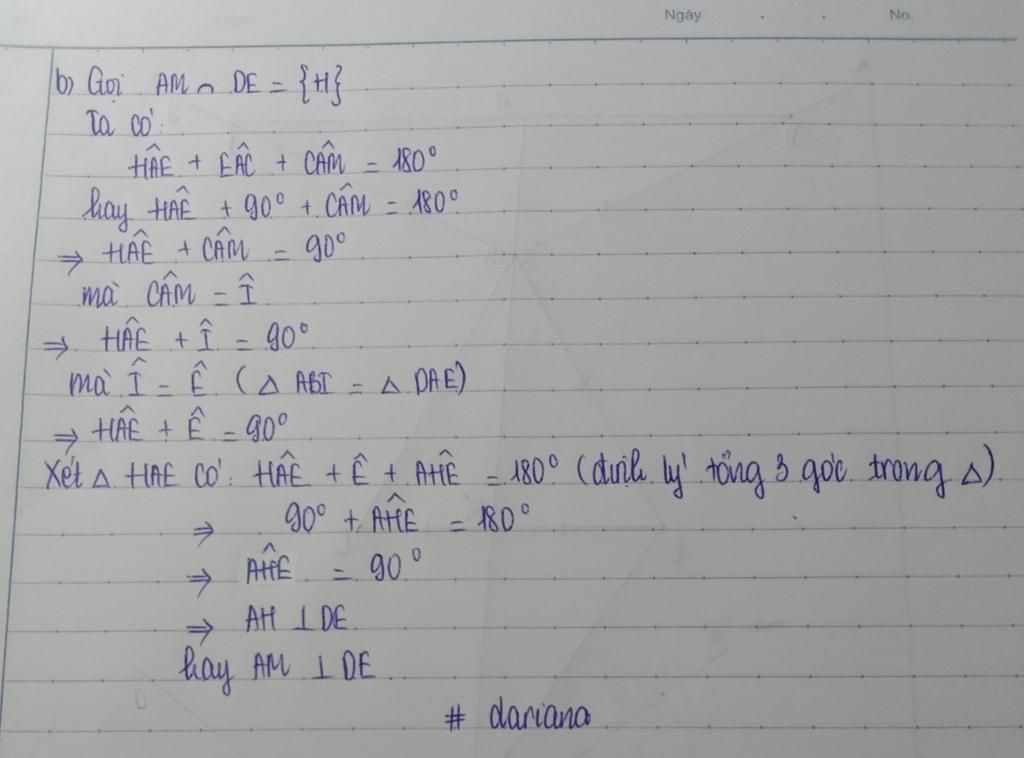 Ngày . . No.
b) Gọi AM ∩ DE = {H}
Ta có:
HÂE + EÂC + CÂM = 180°
hay HÂE + 90° + CÂM = 180°
⇒ HÂE + CÂM = 90°
mà CÂM = Î
⇒ HÂE + Î = 90°
mà Î = Ê (△ ABI = △ DAE)
⇒ HÂE + Ê = 90°
Xét △ HAE có: HÂE + Ê + AĤE = 180° (định lý tổng 3 góc trong △)
⇒ 90° + AĤE = 180°
⇒ AĤE = 90°
⇒ AH ⊥ DE
hay AM ⊥ DE
# dariana